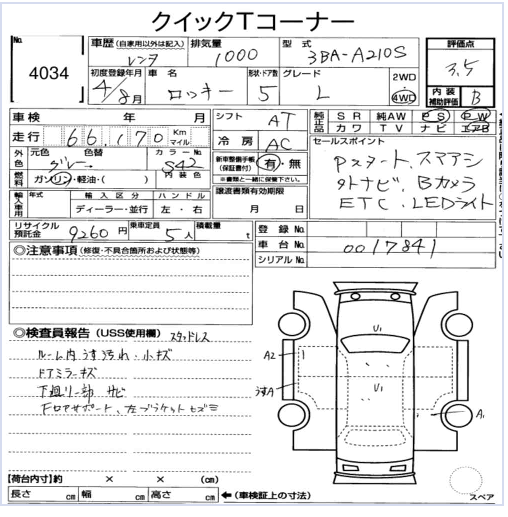 クイックTコーナー
No. 4034
車歴 (自家用以外は記入) レンタ
排気量 1000
型式 3BA-A210S
評価点 3.5
初度登録年月 4/8月
車名 ロッキー
形状・ドア数 5
グレード L
2WD
4WD
内装補助評価 B
車検 年 月
シフト AT
純正品 SR 純AW PS PW
カワ TV ナビ エアB
走行 66,170 Km マイル
冷房 AC
セールスポイント
Pスタート、スマアシ
外ナビ、Bカメラ
ETC、LEDライト
外色 元色 色替 グレー
カラーNo. S42
内装色
新車整備手帳 (保証書付) 有・無
※書類と一緒に保管下さい。
燃料 ガソリン・軽油・( )
譲渡書類有効期限
月 日
輸入車用 年式 輸入区分 ハンドル
ディーラー・並行 左・右
リサイクル預託金 9260円
乗車定員 5人
積載量 t
登録No.
車台No. 0017841
シリアルNo.
◎注意事項 (修復・不具合箇所および状態等)
◎検査員報告 (USS使用欄) スタッドレス
ルーム内うす汚れ・小キズ
ドアミラーキズ
下廻り一部サビ
U1
A2
うすA
U1
A1
【荷台内寸】約 × × (cm)
長さ cm 幅 cm 高さ cm ←(車検証上の寸法)
スペア